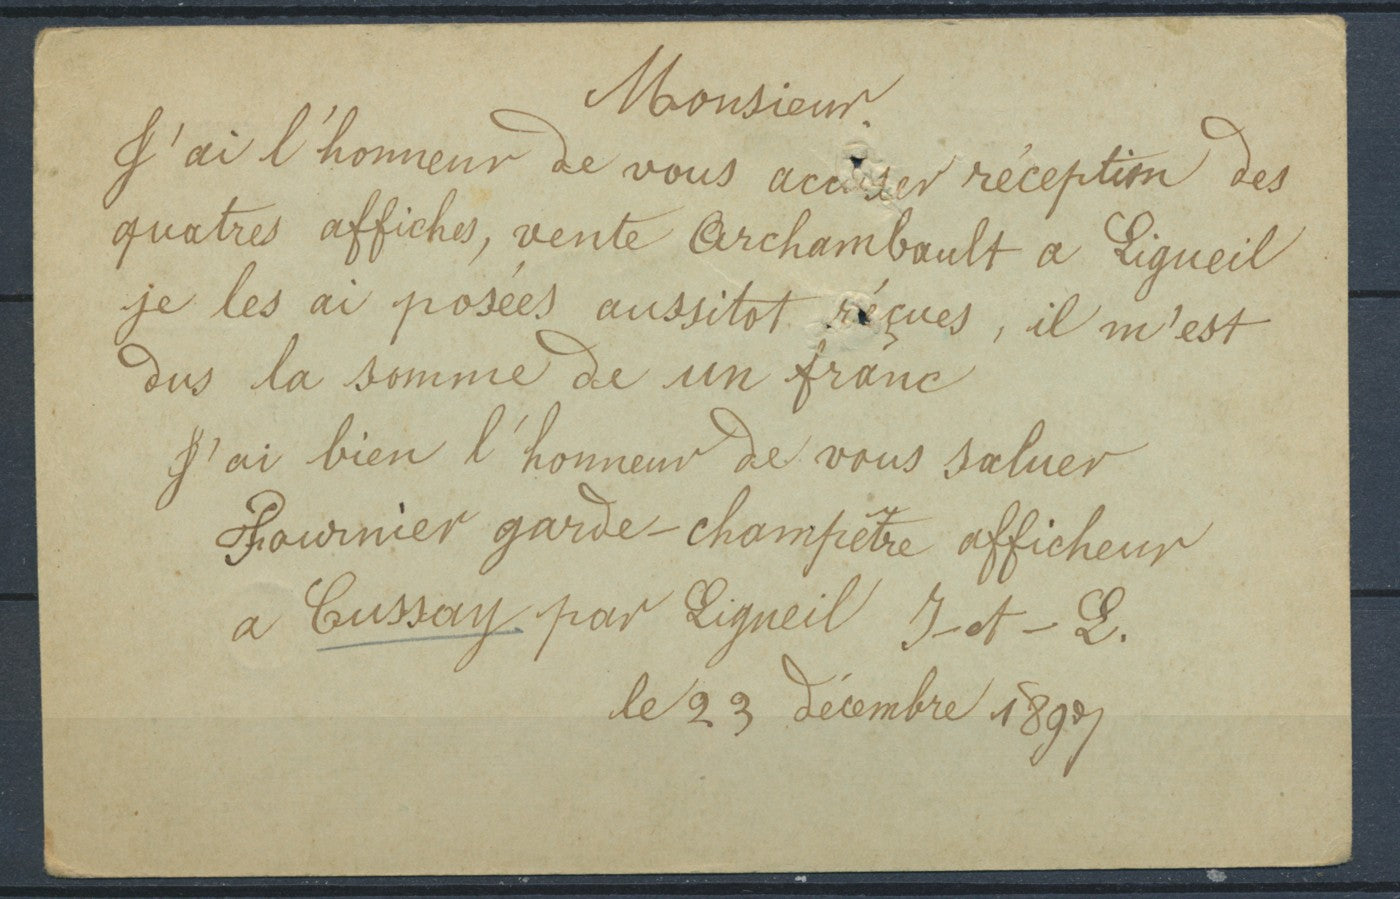 Monsieur.
J'ai l'honneur de vous accuser réception des
quatres affiches, vente Archambault a Ligueil
je les ai posées aussitot réçues, il m'est
dus la somme de un franc
J'ai bien l'honneur de vous saluer
Fournier garde-champêtre afficheur
a Cussay par Ligueil I-et-L.
le 23 décembre 1897